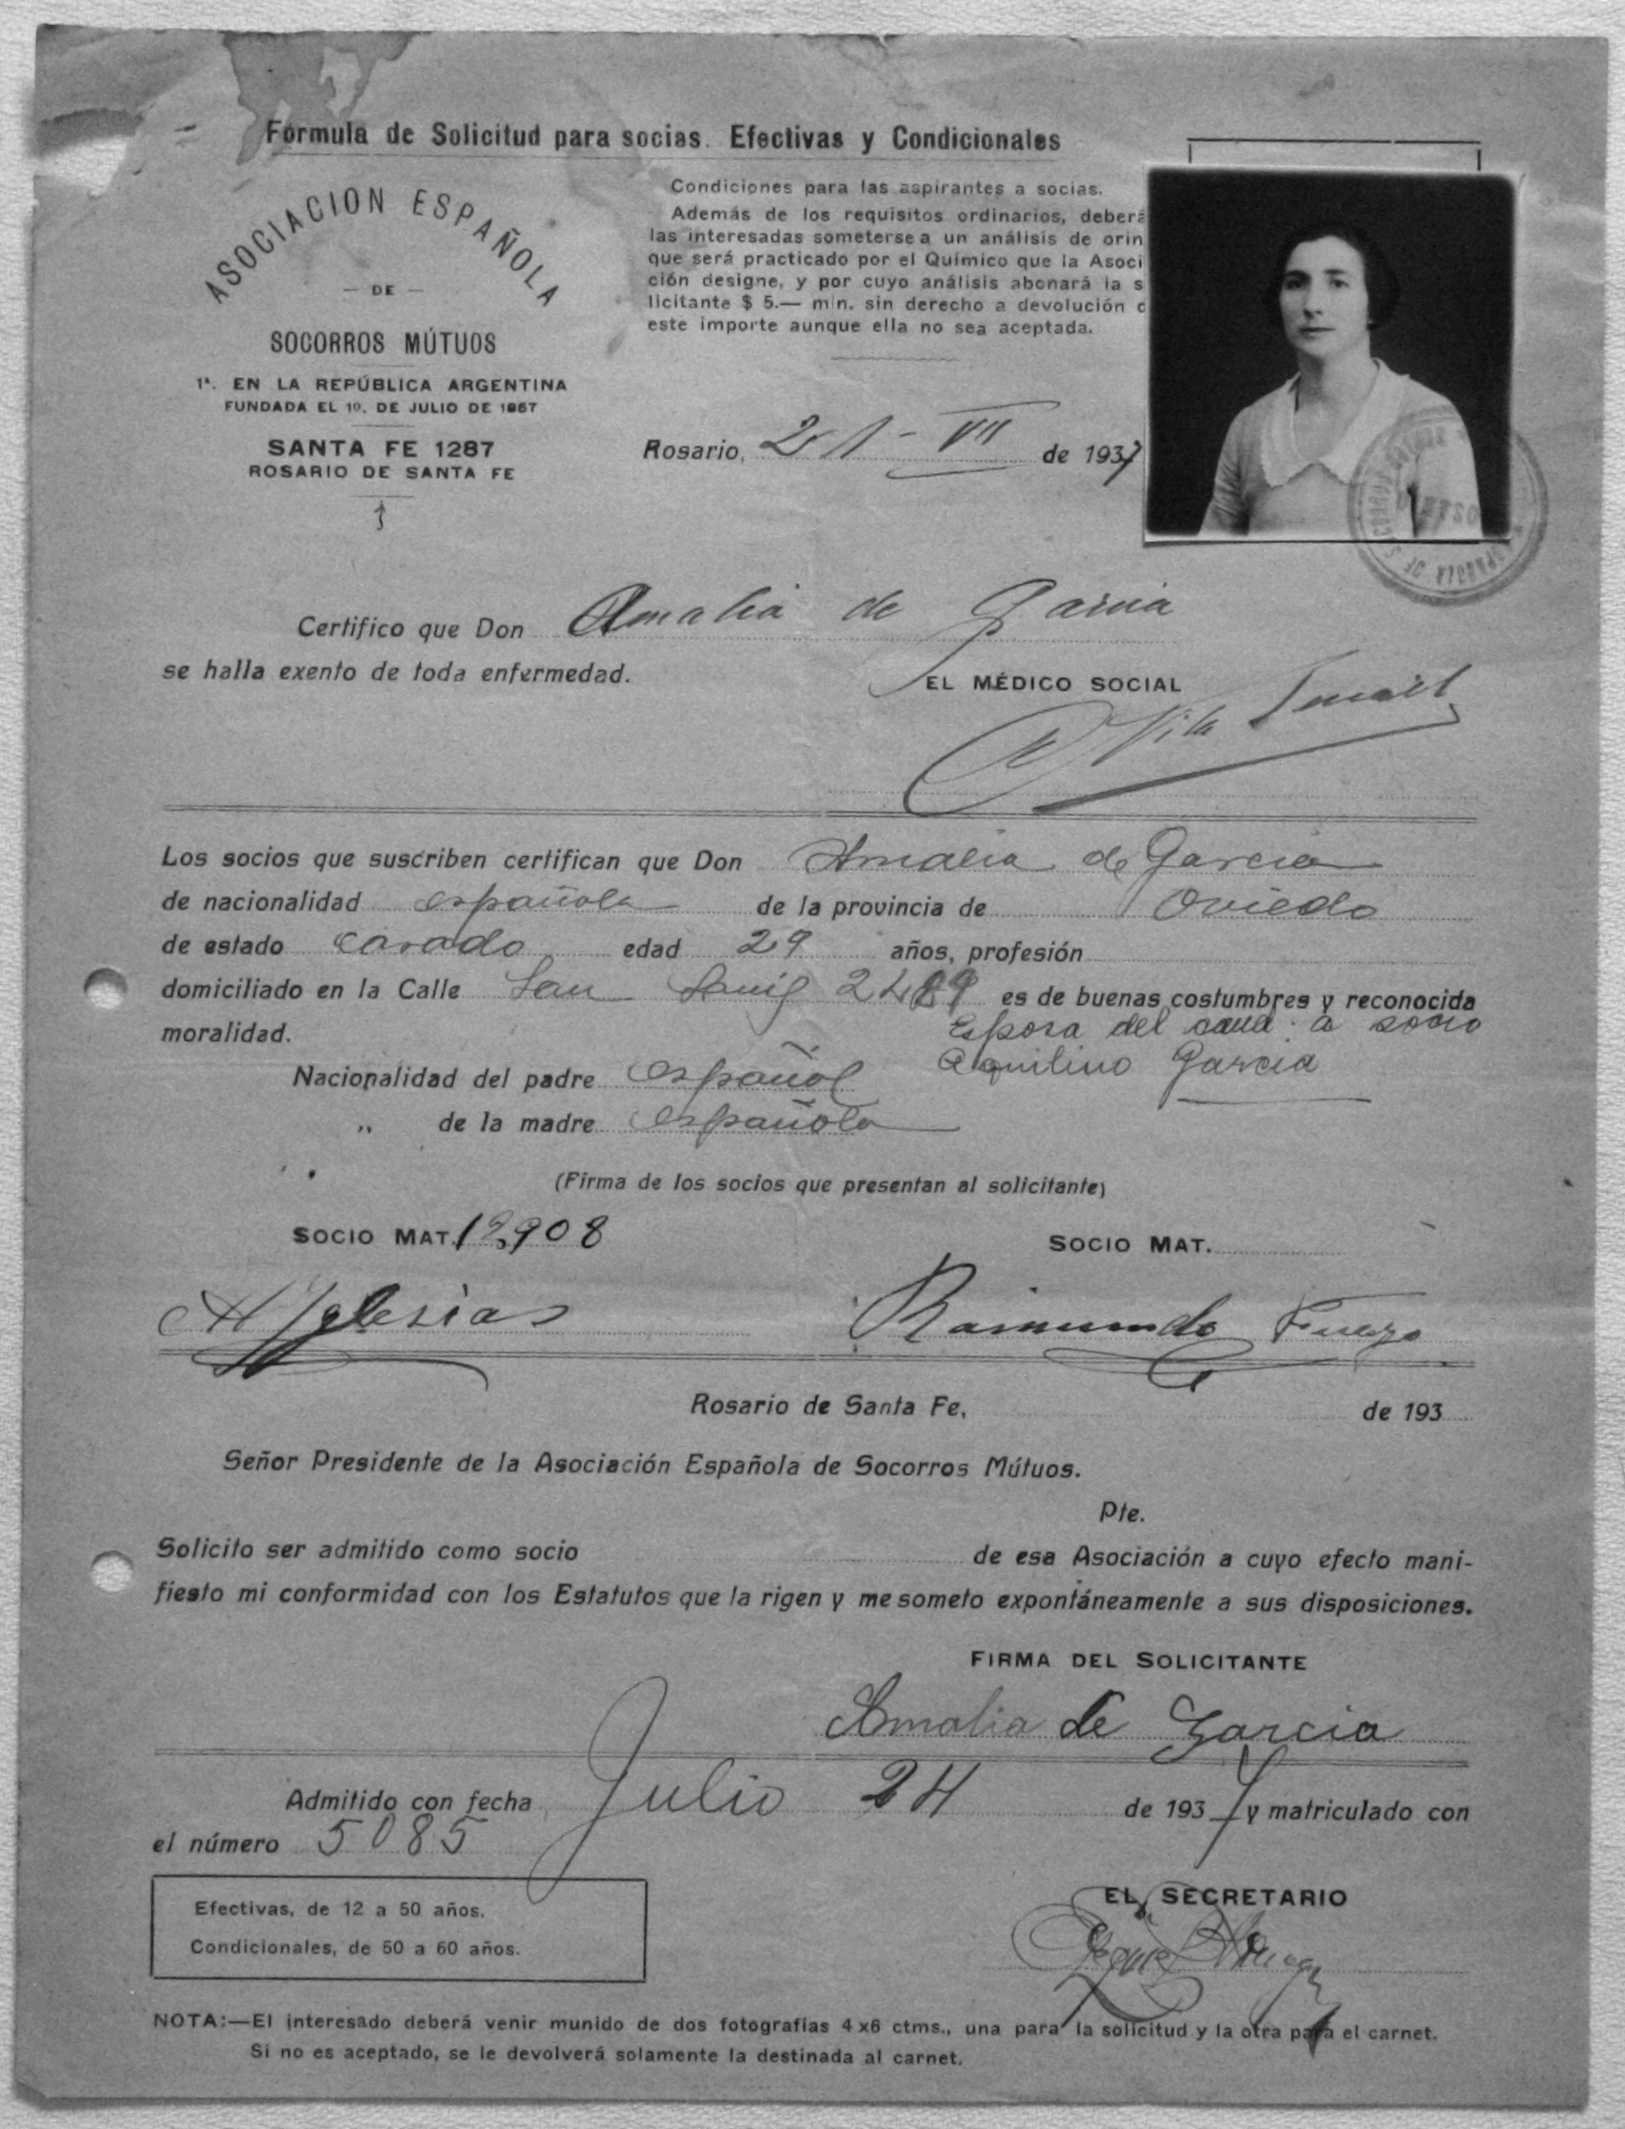 Fórmula de Solicitud para socias. Efectivas y Condicionales
ASOCIACION ESPAÑOLA
— DE —
SOCORROS MÚTUOS
1ª. EN LA REPÚBLICA ARGENTINA
FUNDADA EL 10. DE JULIO DE 1857
SANTA FE 1287
ROSARIO DE SANTA FE
Condiciones para las aspirantes a socias.
Además de los requisitos ordinarios, deberá
las interesadas someterse a un análisis de orin
que será practicado por el Químico que la Asoci
ción designe, y por cuyo análisis abonará la s
licitante $ 5.— m/n. sin derecho a devolución d
este importe aunque ella no sea aceptada.
Rosario, 21 - VII de 1937
Certifico que Don Amalia de Garcia
se halla exento de toda enfermedad.
EL MÉDICO SOCIAL
Vila
Los socios que suscriben certifican que Don Amalia de Garcia
de nacionalidad española de la provincia de Oviedo
de estado casado edad 29 años, profesión
domiciliado en la Calle San Luis 2489 es de buenas costumbres y reconocida
moralidad. Esposa del cand. a socio
Aquilino Garcia
Nacionalidad del padre español
„ de la madre española
(Firma de los socios que presentan al solicitante)
SOCIO MAT. 12908 SOCIO MAT.
A Yglesias Raimundo Fueyo
Rosario de Santa Fe, de 193
Señor Presidente de la Asociación Española de Socorros Mútuos.
Pte.
Solicito ser admitido como socio de esa Asociación a cuyo efecto mani-
fiesto mi conformidad con los Estatutos que la rigen y me someto expontáneamente a sus disposiciones.
FIRMA DEL SOLICITANTE
Amalia de Garcia
Admitido con fecha Julio 24 de 1937 y matriculado con
el número 5085
EL SECRETARIO
Efectivas, de 12 a 50 años.
Condicionales, de 50 a 60 años.
NOTA:—El interesado deberá venir munido de dos fotografías 4x6 ctms., una para la solicitud y la otra para el carnet.
Si no es aceptado, se le devolverá solamente la destinada al carnet.